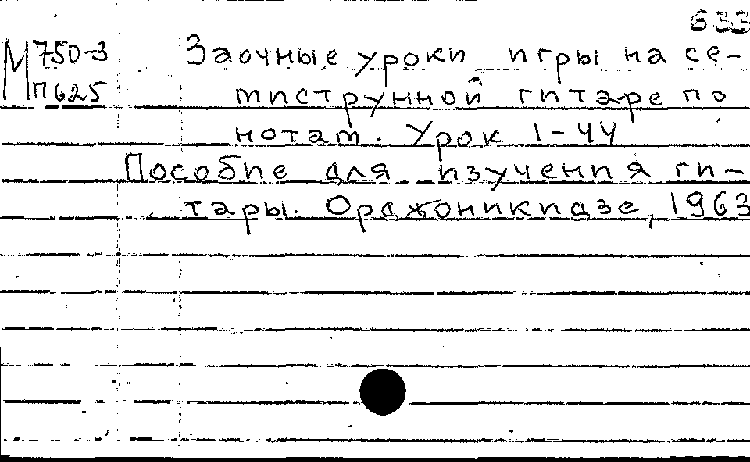 633
М 750-3 Заочные уроки игры на се-
П625 миструнной гитаре по
нотам. Урок 1-44
Пособие для изучения ги-
тары. Орджоникидзе, 1963